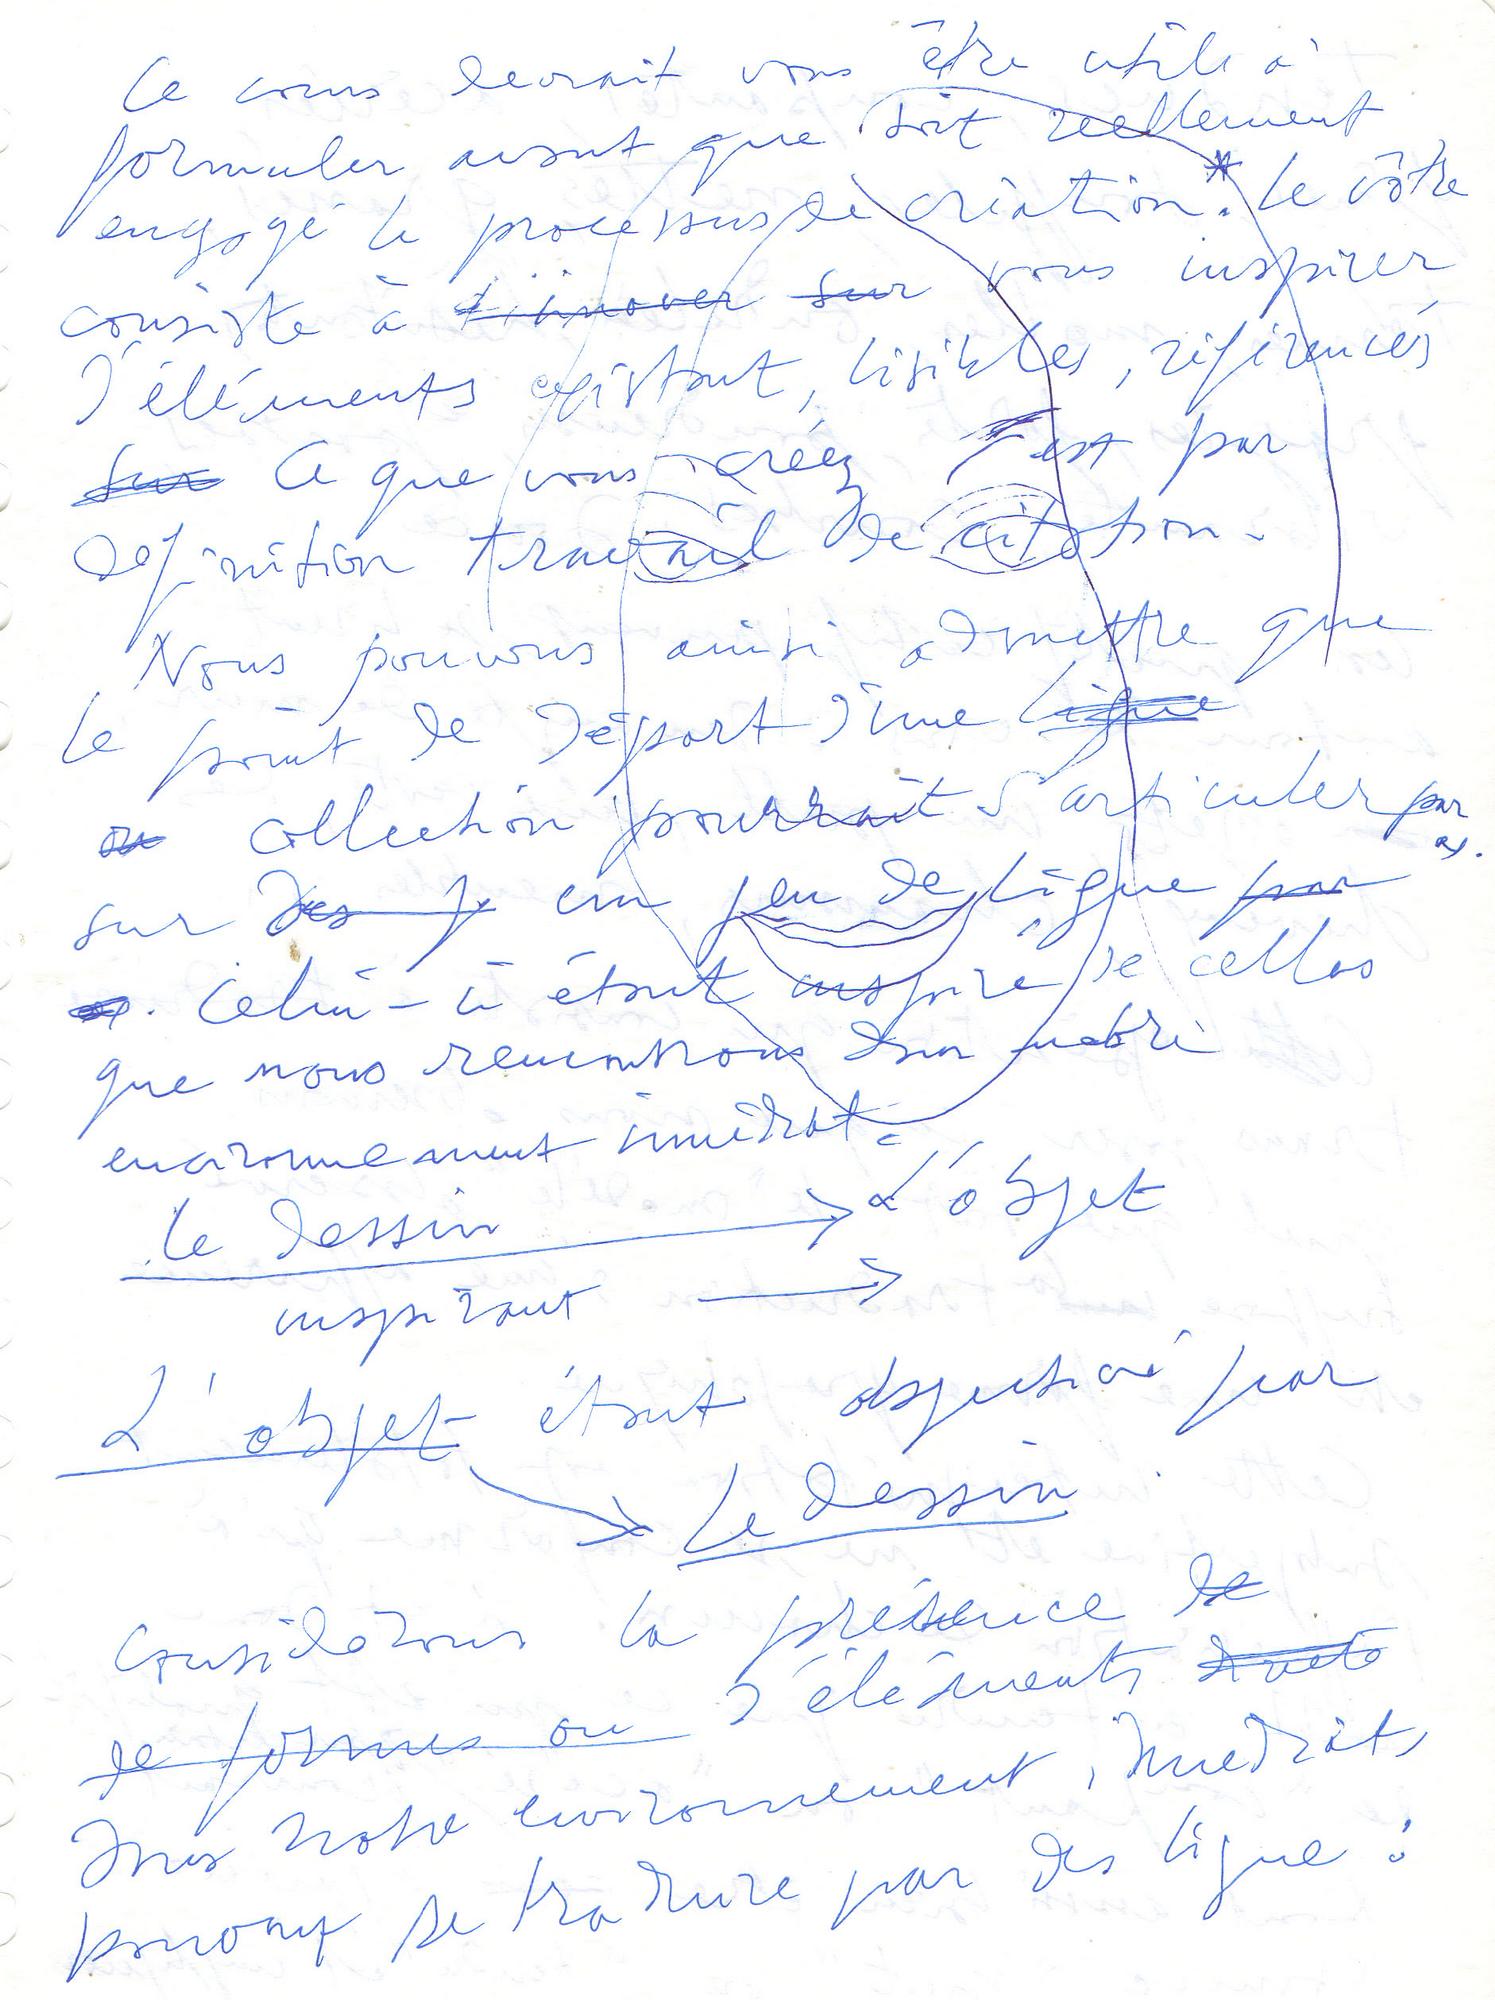 Ce cours devrait vous être utile à
formuler avant que soit reellement
engagé le processus de création. * Le vôtre
consiste à innover sur vous inspirer
d'éléments existant, lisibles, référencés
sur Ce que vous créez est par
definition travail de citation.
Nous pouvons ainsi admettre que
le point de départ d'une ligne
ou collection pourrait s'articuler par
ex.
sur des un jeu de ligne par
ex. Celui-ci étant inspiré de celles
que nous rencontrons dans notre
environnement immédiat.
Le dessin → L'objet
inspirant →
L'objet étant objectivé par
Le dessin
Considérons la présence de
de formes ou d'éléments
dans notre environnement, immédiat,
pouvant se traduire par des ligne :